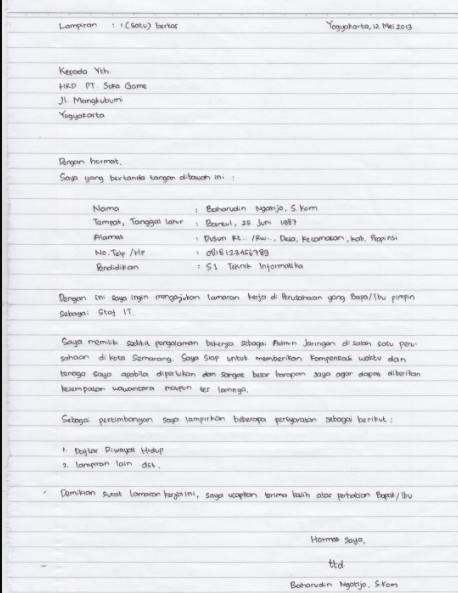 Lampiran : 1 (Satu) berkas Yogyakarta, 12 Mei 2013
Kepada Yth.
HRD PT. Suka Game
Jl. Mangkubumi
Yogyakarta
Dengan hormat,
Saya yang bertanda tangan dibawah ini :
Nama : Baharudin Ngatijo, S.Kom
Tempat, Tanggal lahir : Bantul, 25 Juni 1987
Alamat : Dusun Rt.. /Rw.., Desa, Kecamatan, Kab, Propinsi
No. Telp /Hp : 0818123456789
Pendidikan : S1 Teknik Informatika
Dengan ini saya ingin mengajukan lamaran kerja di Perusahaan yang Bapa/Ibu pimpin
Sebagai Staf IT.
Saya memiliki sedikit pengalaman bekerja sebagai Admin Jaringan di salah satu peru-
sahaan di kota Semarang. Saya siap untuk memberikan kompensasi waktu dan
tenaga saya apabila diperlukan dan sangat besar harapan saya agar dapat diberikan
kesempatan wawancara maupun tes lainnya.
Sebagai pertimbangan saya lampirkan beberapa persyaratan sebagai berikut :
1. Daftar Riwayat Hidup
2. lampiran lain dst.
Demikian surat lamaran kerja ini, saya ucapkan terima kasih atas perhatian Bapak/Ibu
Hormat Saya,
ttd
Baharudin Ngatijo, S.Kom